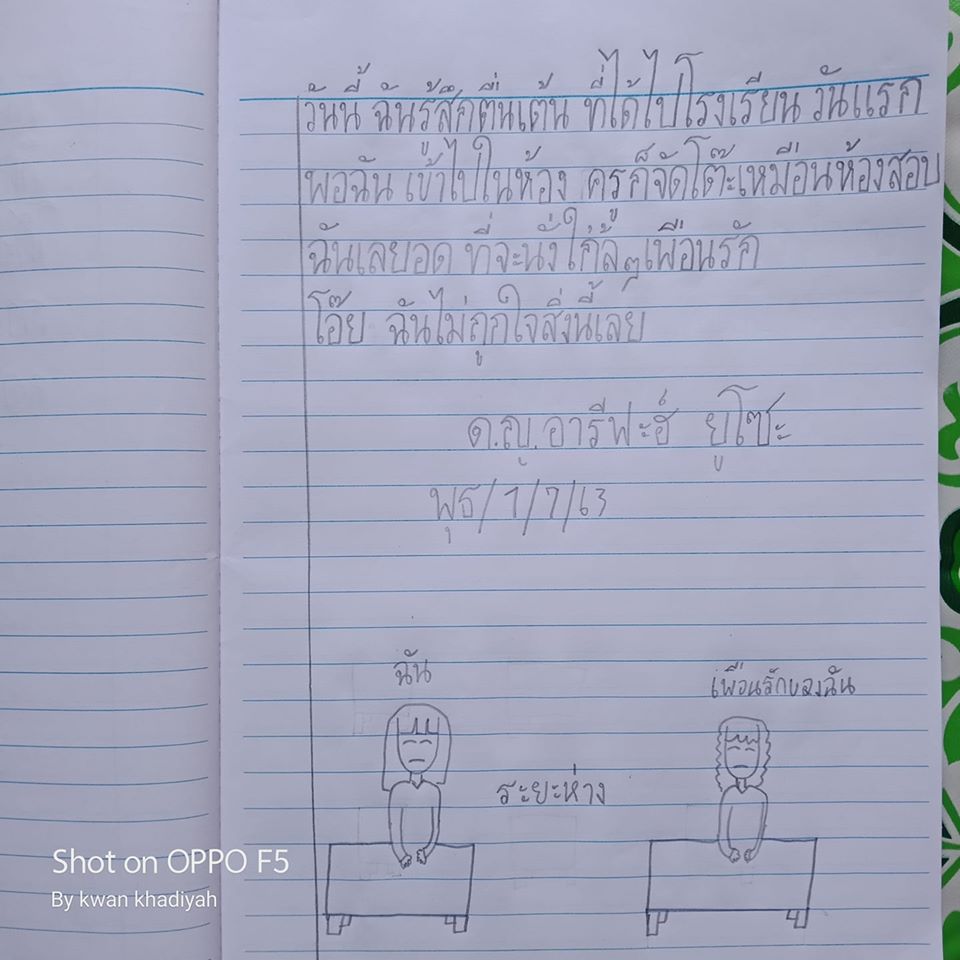 วันนี้ ฉันรู้สึกตื่นเต้น ที่ได้ไปโรงเรียน วันแรก
พอฉัน เข้าไปในห้อง ครูก็จัดโต๊ะเหมือนห้องสอบ
ฉันเลยอด ที่จะนั่งใกล้ๆเพื่อนรัก
โอ๊ย ฉันไม่ถูกใจสิ่งนี้เลย
ด.ญ.อารีฟะฮ์ ยูโซะ
พุธ/1/7/63
ฉัน
เพื่อนรักของฉัน
ระยะห่าง
Shot on OPPO F5
By kwan khadiyah